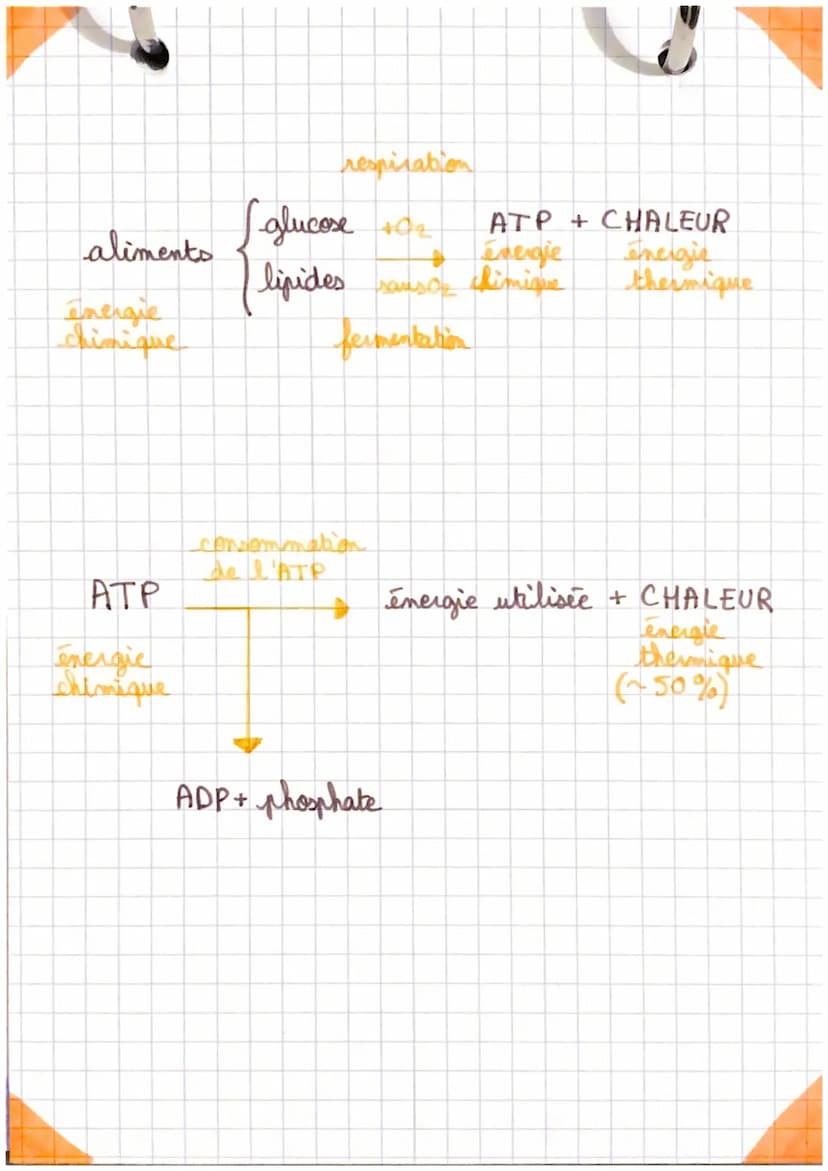 respiration
aliments { glucose +O2 ATP + CHALEUR
lipides sans O2 énergie chimique énergie thermique
énergie
chimique
fermentation
consommation
de l'ATP
ATP énergie utilisée + CHALEUR
énergie
chimique
énergie
thermique
(~50%)
ADP + phosphate